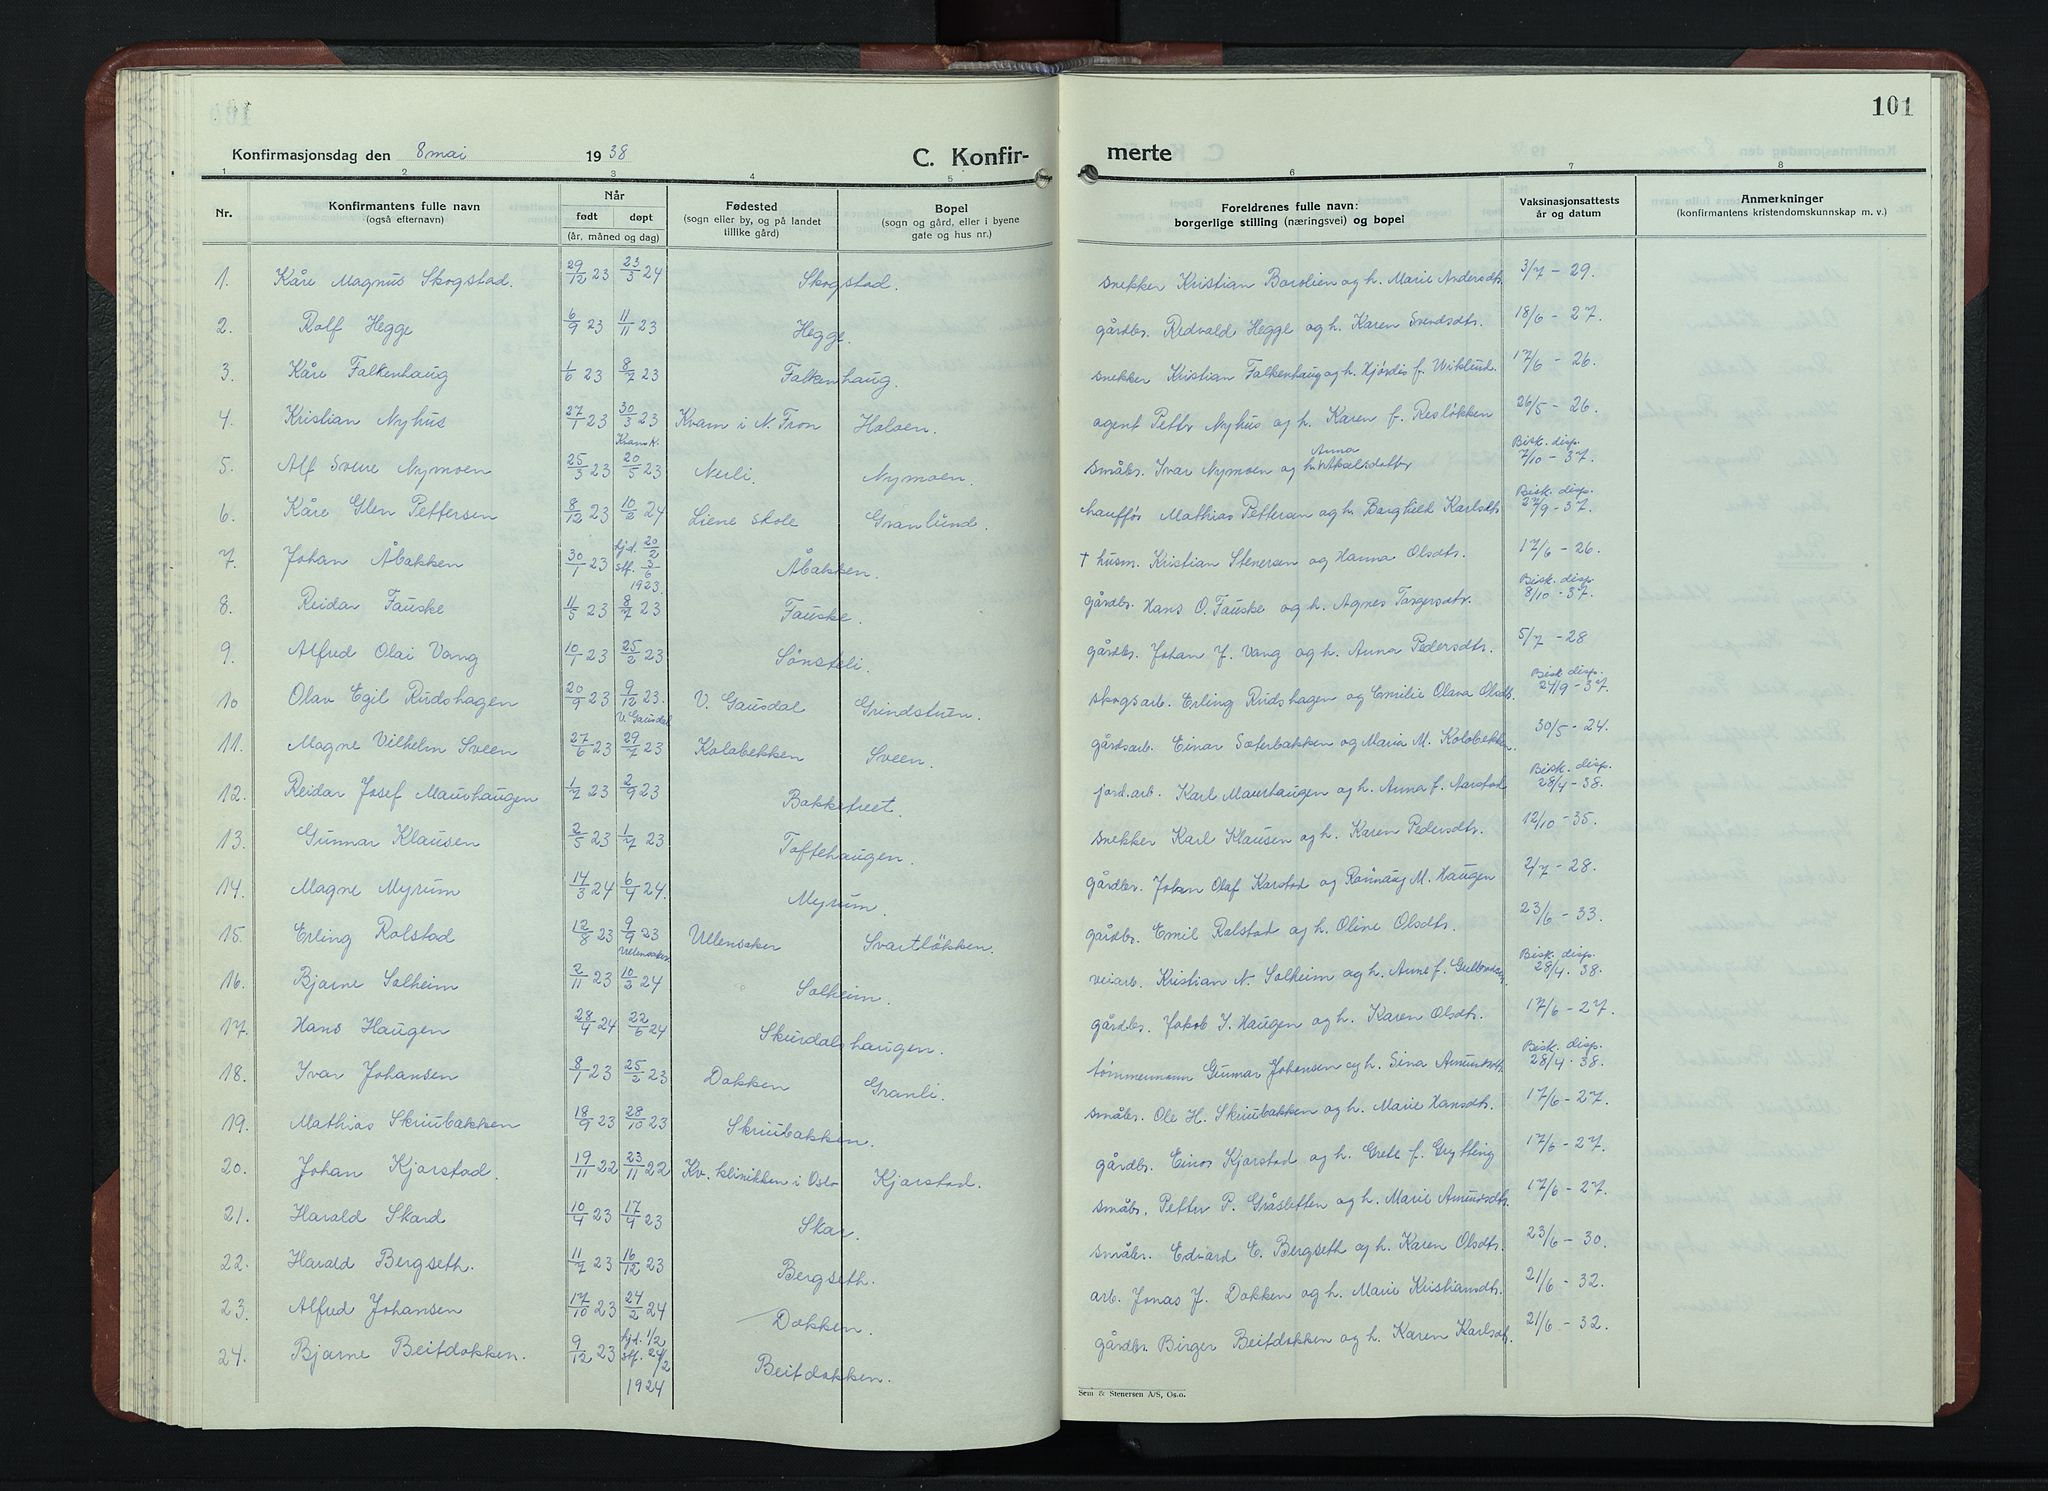 101
Konfirmasjonsdag den 8 mai 1938
C. Konfir-
merte
1 2 3 4 5 6 7 8
Nr.
Konfirmantens fulle navn
(også efternavn)
Når
født døpt
(år, måned og dag)
Fødested
(sogn eller by, og på landet
tillike gård)
Bopel
(sogn og gård, eller i byene
gate og hus nr.)
Foreldrenes fulle navn:
borgerlige stilling (næringsvei) og bopel
Vaksinasjonsattests
år og datum
Anmerkninger
(konfirmantens kristendomskunnskap m. v.)
1. Kåre Magnus Skogstad. 29/12 23 23/3 24 Skogstad. snekker Kristian Barolien og h. Marie Andersdtr. 3/7 - 29.
2. Rolf Hegge 6/9 23 11/11 23 Hegge. gårdbr. Redvald Hegge og h. Karen Svendsdtr. 18/6 - 27.
3. Kåre Falkenhaug 1/6 23 8/7 23 Falkenhaug. snekker Kristian Falkenhaug og h. Hjørdis f. Wiklund. 17/6 - 26.
4. Kristian Nyhus 27/1 23 30/3 23 Kvam k. Kvam i N. Fron Holoen. agent Petter Nyhus og h. Karen f. Resløkken 26/5 - 26.
5. Alf Sverre Nymoen 25/3 23 20/5 23 Nerli. Nymoen. småbr. Ivar Nymoen og h. Anna Akselsdatter Bisk. disp. 7/10 - 37.
6. Kåre Glen Pettersen 8/12 23 10/2 24 Liene skole Granlund. chauffør Mathias Pettersen og h. Borghild Karlsdtr. Bisk. disp. 27/9 - 37.
7. Johan Åbakken 30/1 23 hjd. 20/2 stf. 3/6 1923. Åbakken. † husm. Kristian Stenersen og Hanna Olsdtr. 17/6 - 26.
8. Reidar Fauske 11/5 23 8/7 23 Fauske. gårdbr. Hans O. Fauske og h. Agnes Torgersdtr. Bisk. disp. 8/10 - 37.
9. Alfred Olai Vang 10/1 23 25/2 23 Sønsteli. gårdbr. Johan J. Vang og h. Anna Pedersdtr. 5/7 - 28
10 Olav Egil Rudshagen 20/9 23 9/12 23. V. Gausdal V. Gausdal Grindstuen. skogsarb. Erling Rudshagen og Emilie Olava Olsdtr. Bisk. disp. 27/9 - 37.
11. Magne Vilhelm Sveen 27/6 23 29/7 23 Kolobekken Sveen. gårdsarb. Einar Sæterbakken og Maria M. Kolobekken. 30/5 - 24.
12. Reidar Josef Maurhaugen 1/7 23 2/9 23 Bakketreet. jord.arb. Karl Maurhaugen og h. Anna f. Aarstad Bisk. disp. 28/4 - 38.
13. Gunnar Klausen 2/5 23 1/7 23 Toftehaugen. snekker Karl Klausen og h. Karen Pedersdtr. 12/10 - 35.
14. Magne Myrum 14/3 24 6/4 24. Myrum. gårdbr. Johan Olaf Karstad og Rannaug M. Haugen 2/7 - 28.
15. Erling Rolstad 12/8 23 9/9 23 Ullensaker Ullensaker Svartløkken. gårdbr. Emil Rolstad og h. Oline Olsdtr. 23/6 - 33.
16. Bjarne Solheim 2/11 23 10/2 24 Solheim. veiarb. Kristian N. Solheim og h. Anne f. Bisk. disp. 28/4. 38.
17. Hans Haugen 28/4 24 22/6 24 Skurdalshaugen. gårdbr. Jakob I. Haugen og h. Karen Olsdtr. 17/6 - 27.
18. Ivar Johansen 8/1 23 25/2 23 Dokken Granli. tømmermann Gunnar Johansen og h. Sina Amundsdtr. Bisk. disp. 28/4 - 38.
19. Mathias Skruubakken 18/9 23 28/10 23 Skruubakken. småbr. Ole H. Skruubakken og h. Marie Hansdtr. 17/6 - 27.
20. Johan Kjorstad. 19/11 22 23/11 22 Kv. klinikken i Oslo Kjorstad. gårdbr. Einar Kjorstad og h. Grete f. Grytting 17/6 - 27.
21. Harald Skard 10/4 23 17/4 23 Skar. småbr. Petter P. Gråsletten og h. Marie Amundsdtr. 17/6 - 27.
22. Harald Bergseth. 11/7 23 16/12 23 Bergseth. småbr. Edvard E. Bergseth og h. Karen Olsdtr. 23/6 - 30.
23. Alfred Johansen 17/10 23 24/2 24 Dokken. arb. Jonas J. Dokken og h. Marie Kristiansdtr. 21/6 - 32.
24. Bjarne Beitdokken. 9/12 23 hjd. 1/2 stf. 24/2 1924 Beitdokken. gårdbr. Birger Beitdokken og h. Karen Karlsdt. 21/6 - 32.
Sem & Stenersen A/S, Oslo.